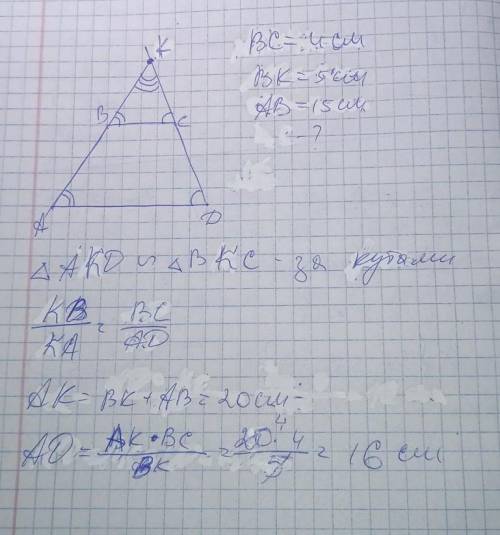 K
BC = 4 см
BK = 5 см
AB = 15 см
- ?
B C
A D
△ AKD ∽ △ BKC - за кутами
KB/KA = BC/AD
AK = BK + AB = 20 см
AD = AK · BC / BK = 20 · 4 / 5 = 16 см